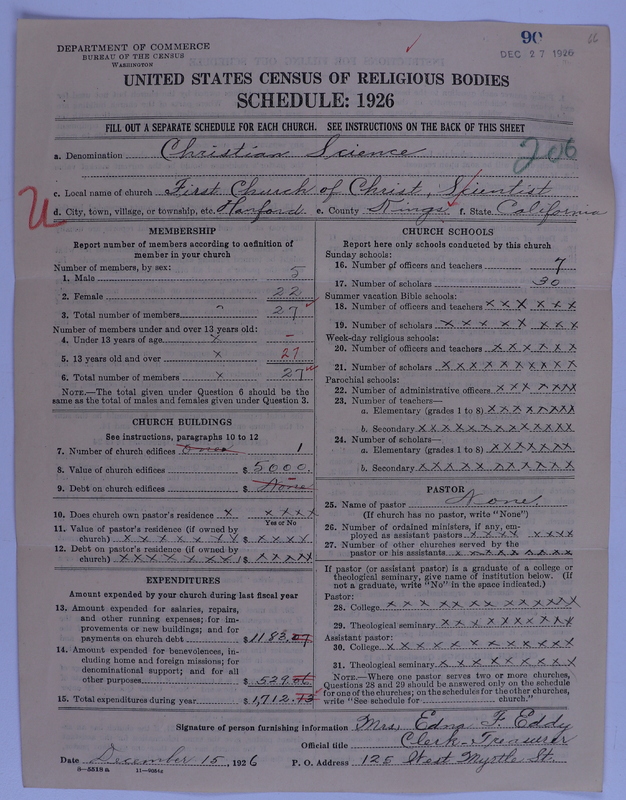 DEPARTMENT OF COMMERCE
BUREAU OF THE CENSUS
WASHINGTON
90
DEC 27 1926
UNITED STATES CENSUS OF RELIGIOUS BODIES
SCHEDULE: 1926
FILL OUT A SEPARATE SCHEDULE FOR EACH CHURCH. SEE INSTRUCTIONS ON THE BACK OF THIS SHEET
a. Denomination Christian Science
206
c. Local name of church First Church of Christ, Scientist
d. City, town, village, or township, etc. Hanford e. County Kings f. State California
MEMBERSHIP
Report number of members according to definition of
member in your church
Number of members, by sex:
1. Male 5
2. Female 22
3. Total number of members 27
Number of members under and over 13 years old:
4. Under 13 years of age x -
5. 13 years old and over x 27
6. Total number of members x 27
NOTE.—The total given under Question 6 should be the
same as the total of males and females given under Question 3.
CHURCH BUILDINGS
See instructions, paragraphs 10 to 12
7. Number of church edifices 1
8. Value of church edifices $5000.
9. Debt on church edifices $ None
10. Does church own pastor's residence x x x x x
Yes or No
11. Value of pastor's residence (if owned by
church) x x x x x x x $ x x x x
12. Debt on pastor's residence (if owned by
church) x x x x x x x $ x x x x x
EXPENDITURES
Amount expended by your church during last fiscal year
13. Amount expended for salaries, repairs,
and other running expenses; for im-
provements or new buildings; and for
payments on church debt $1183.
14. Amount expended for benevolences, in-
cluding home and foreign missions; for
denominational support; and for all
other purposes $529.
15. Total expenditures during year $1,712.
CHURCH SCHOOLS
Report here only schools conducted by this church
Sunday schools:
16. Number of officers and teachers 7
17. Number of scholars 30
Summer vacation Bible schools:
18. Number of officers and teachers x x x x x x
19. Number of scholars x x x x x x x x
Week-day religious schools:
20. Number of officers and teachers x x x x x x x
21. Number of scholars x x x x x x x x x x
Parochial schools:
22. Number of administrative officers x x x x x x x
23. Number of teachers—
a. Elementary (grades 1 to 8) x x x x x x x x
b. Secondary x x x x x x x x x x x
24. Number of scholars—
a. Elementary (grades 1 to 8) x x x x x x x
b. Secondary x x x x x x x x x x x
PASTOR
25. Name of pastor None.
(If church has no pastor, write "None")
26. Number of ordained ministers, if any, em-
ployed as assistant pastors x x x x x x x x
27. Number of other churches served by the
pastor or his assistants x x x x x x x x x
If pastor (or assistant pastor) is a graduate of a college or
theological seminary, give name of institution below. (If
not a graduate, write "No" in the space indicated.)
Pastor:
28. College x x x x x x x x x x x x
29. Theological seminary x x x x x x x x x
Assistant pastor:
30. College x x x x x x x x x x x
31. Theological seminary x x x x x x x x x
NOTE.—Where one pastor serves two or more churches,
Questions 28 and 29 should be answered only on the schedule
for one of the churches; on the schedules for the other churches,
write "See schedule for church."
Signature of person furnishing information Mrs. Edna F. Eddy
Official title Clerk-Treasurer
Date December 15, 1926 P. O. Address 125 West Myrtle St.
8—5518a